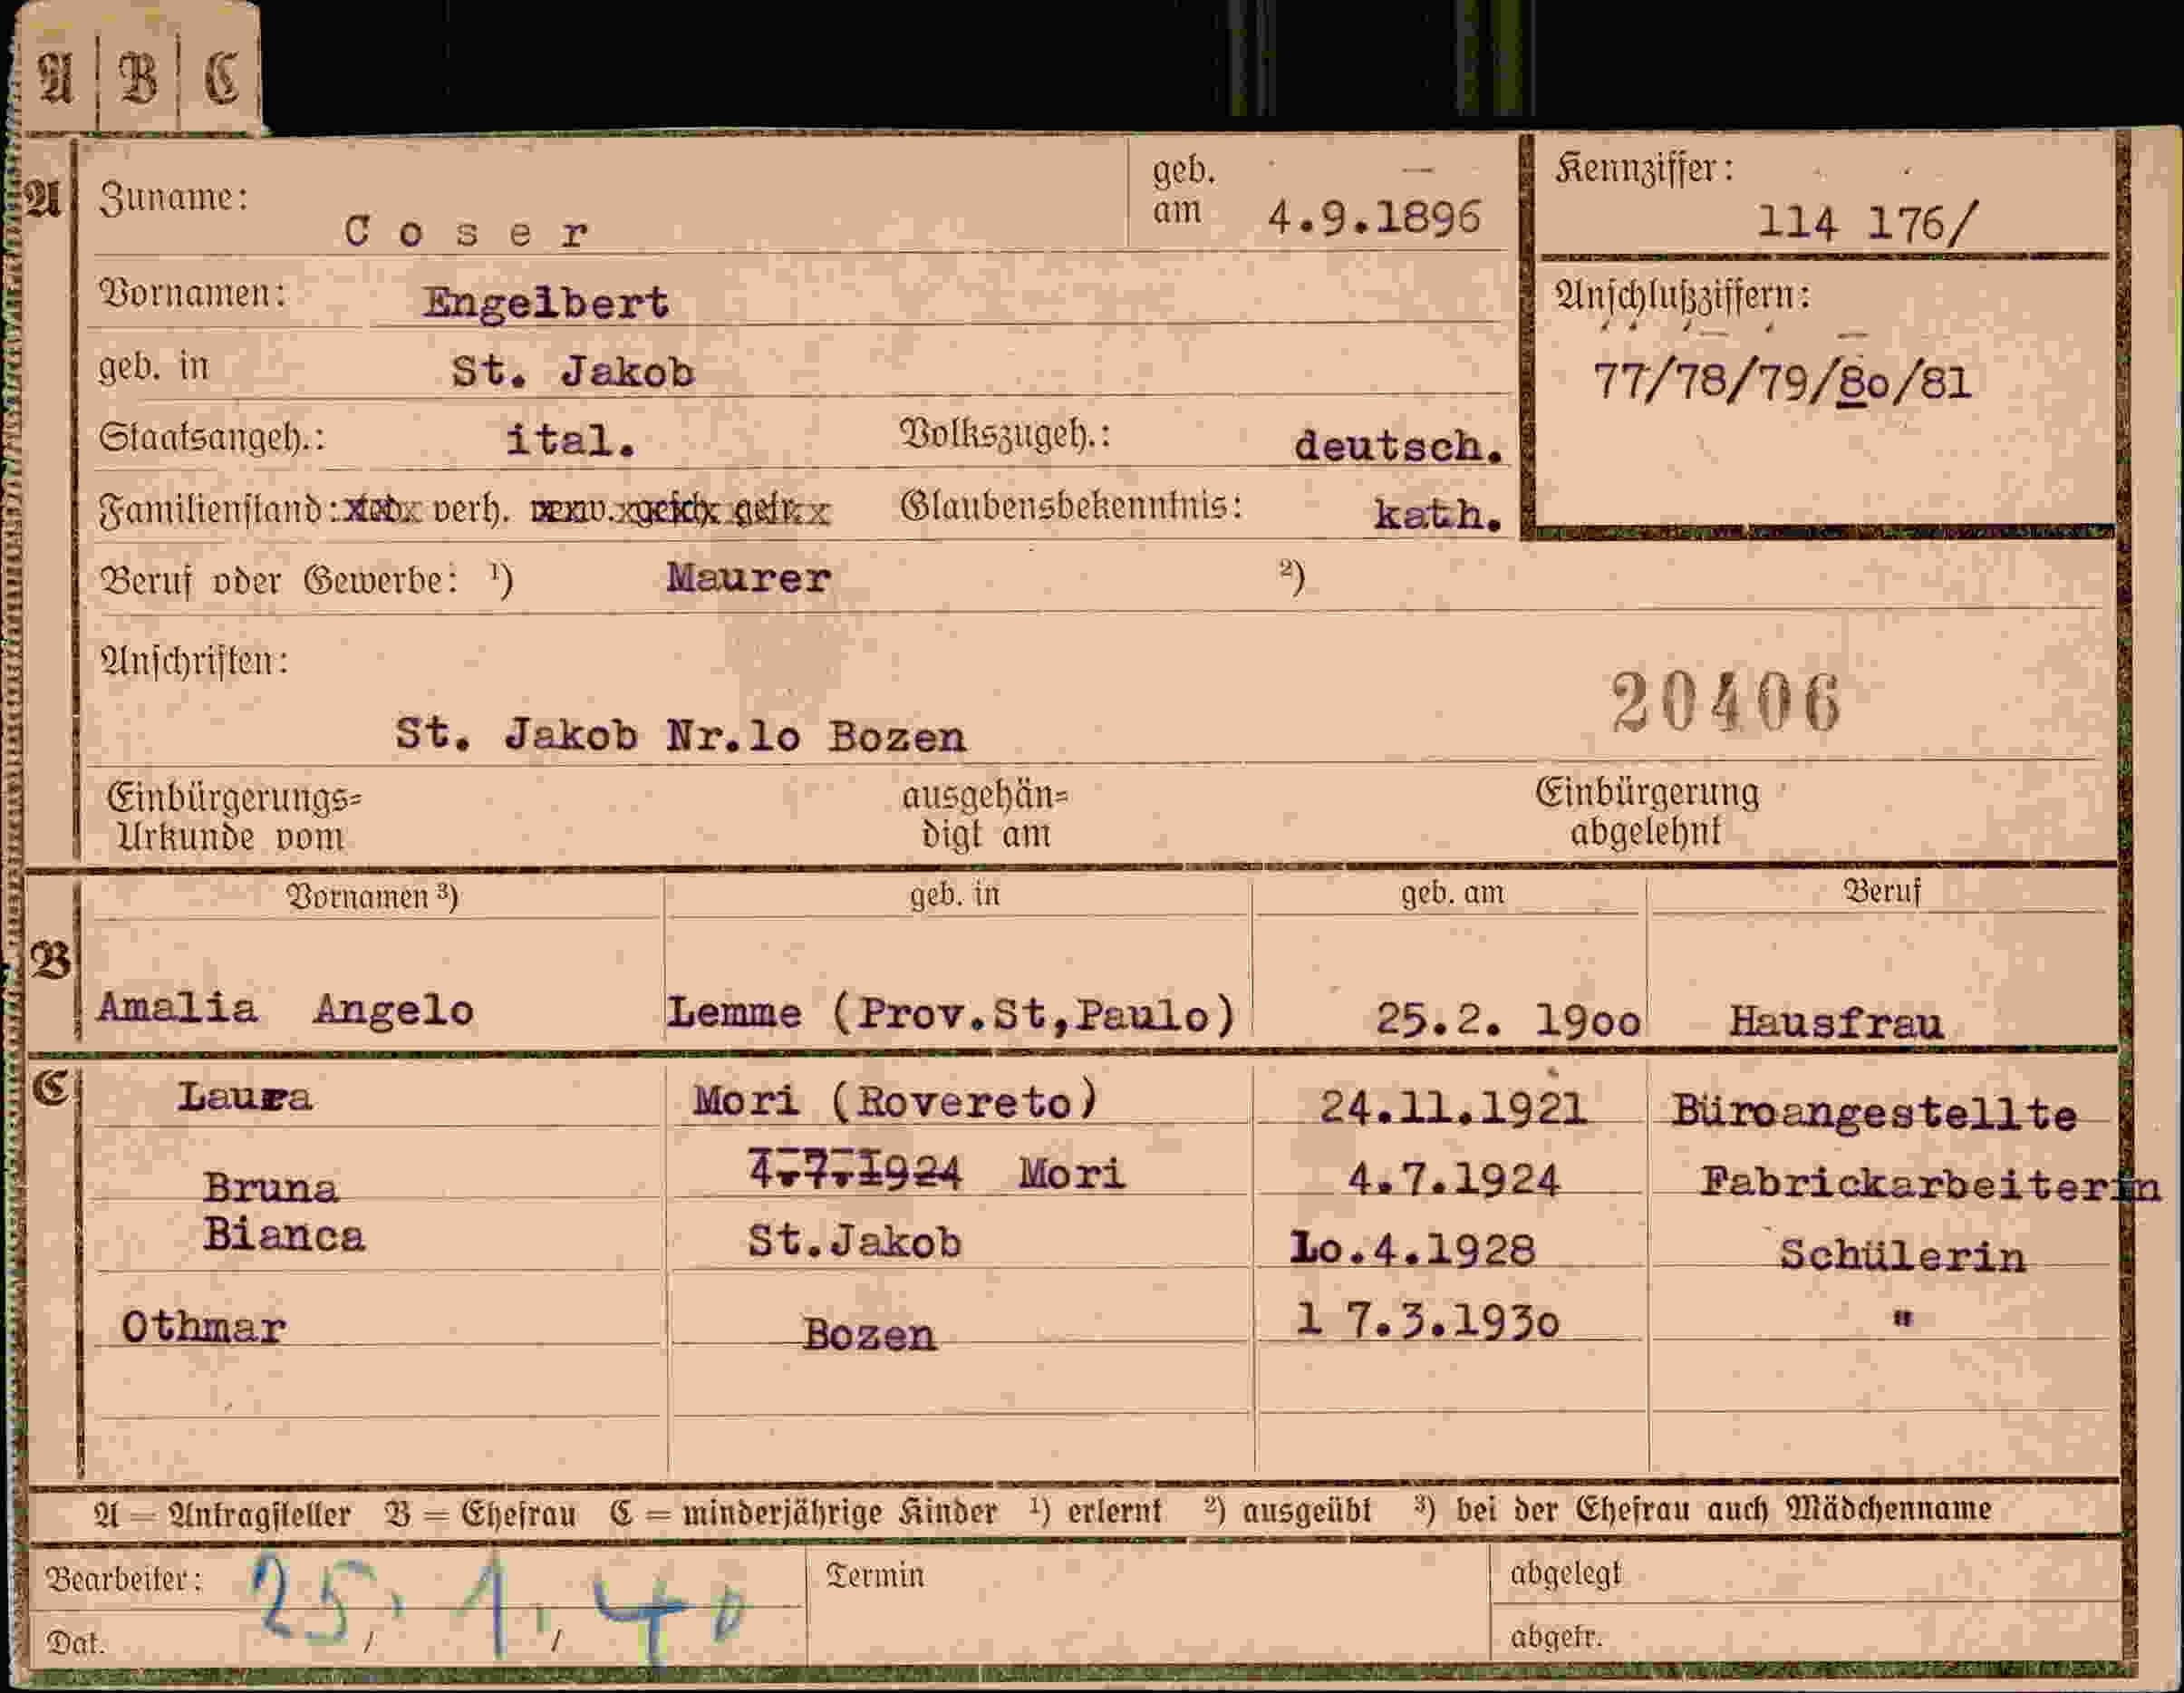 A B C
A Zuname: Coser geb. am 4.9.1896 Kennziffer: 114 176/
Vornamen: Engelbert Anschlußziffern:
geb. in St. Jakob 77/78/79/80/81
Staatsangeh.: ital. Volkszugeh.: deutsch.
Familienstand: verh. Glaubensbekenntnis: kath.
Beruf oder Gewerbe: ¹) Maurer ²)
Anschriften: 20406
St. Jakob Nr.lo Bozen
Einbürgerungs= ausgehän= Einbürgerung
Urkunde vom digt am abgelehnt
Vornamen ³) geb. in geb. am Beruf
B
Amalia Angelo Lemme (Prov.St,Paulo) 25.2. 19oo Hausfrau
C Laura Mori (Rovereto) 24.11.1921 Büroangestellte
Bruna 4.7.1924 Mori 4.7.1924 Fabrickarbeiterin
Bianca St.Jakob lo.4.1928 Schülerin
Othmar Bozen 1 7.3.193o "
A = Antragsteller B = Ehefrau C = minderjährige Kinder ¹) erlernt ²) ausgeübt ³) bei der Ehefrau auch Mädchenname
Bearbeiter: 25. 1. 40 Termin abgelegt
Dat. / / abgetr.